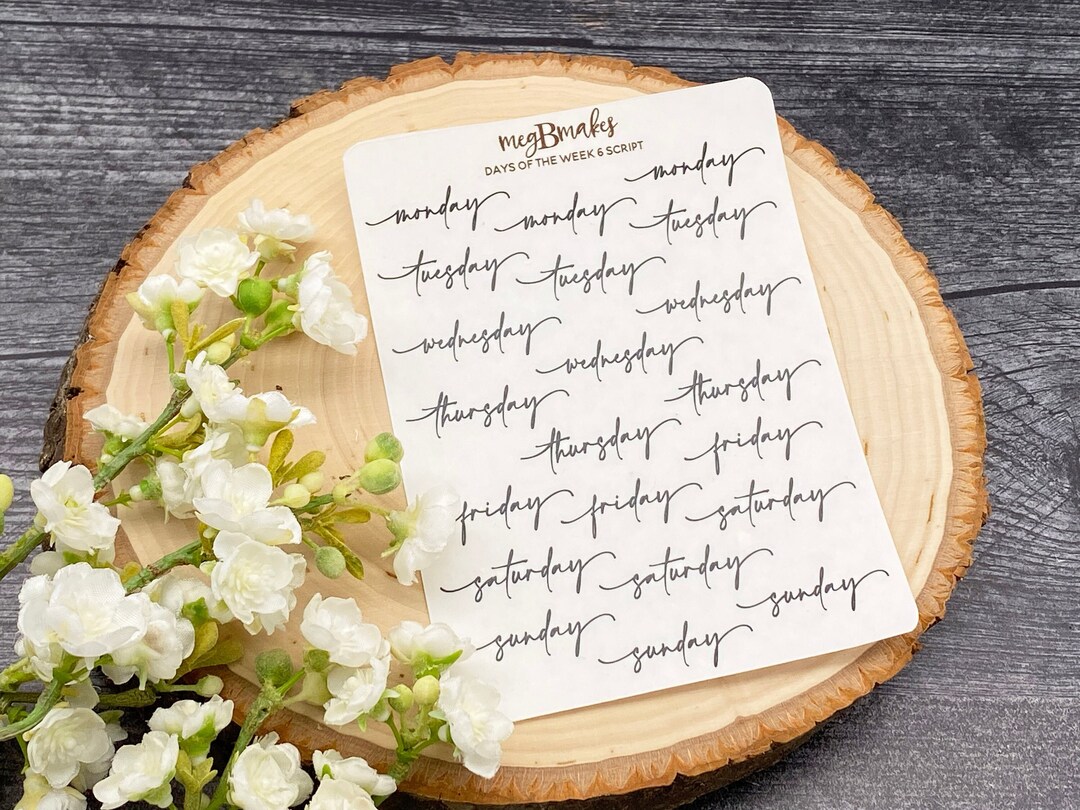 megBmakes
DAYS OF THE WEEK 6 SCRIPT
monday monday monday
tuesday tuesday tuesday
wednesday wednesday wednesday
thursday thursday thursday
friday friday friday
saturday saturday saturday
sunday sunday sunday